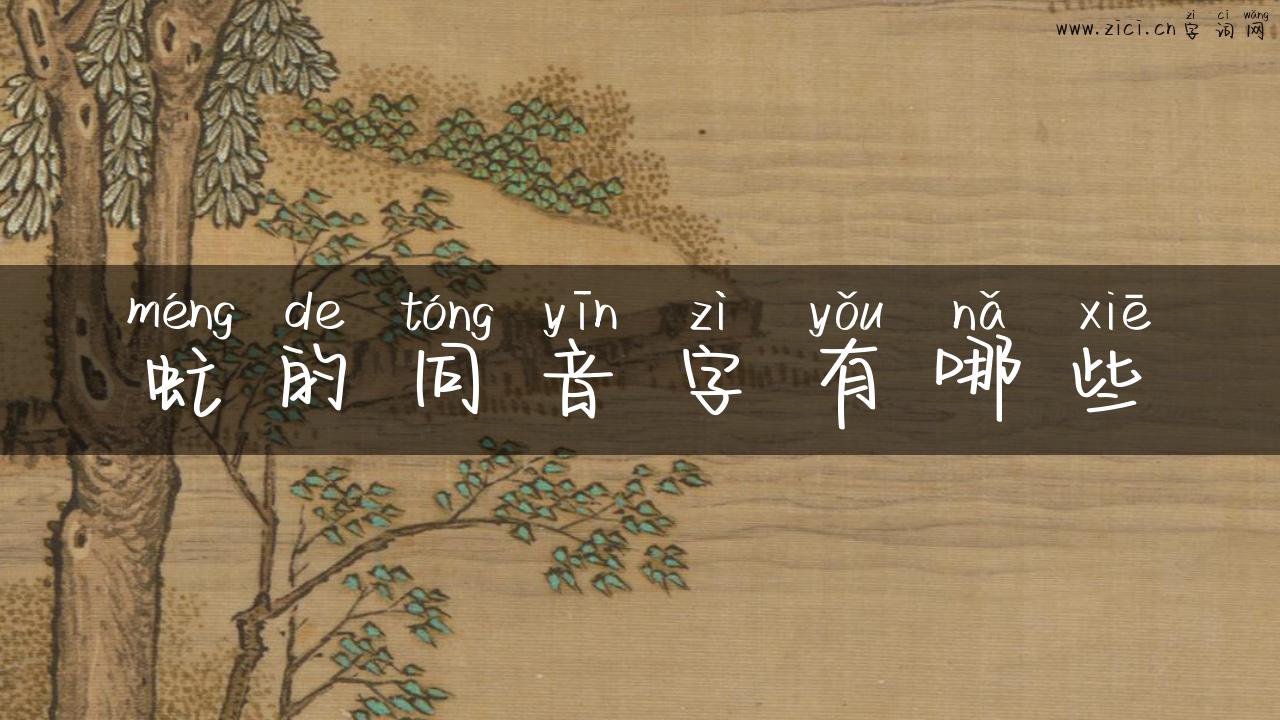 zì cí wǎng
www.zici.cn字词网
méng de tóng yīn zì yǒu nǎ xiē
虻的同音字有哪些